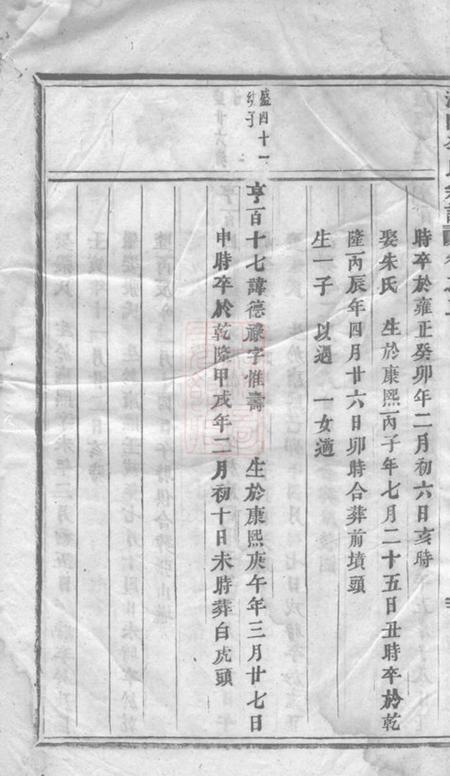 時卒於雍正癸卯年二月初六日亥時
娶朱氏　生於康熙丙子年七月二十五日丑時卒於乾
隆丙辰年四月廿六日卯時合葬前墳頭
生一子　以遇　一女適
盛四十一
幼子
亨百十七諱德祿字惟壽　生於康熙庚午年三月廿七日
申時卒於乾隆甲戌年二月初十日未時葬白虎頭